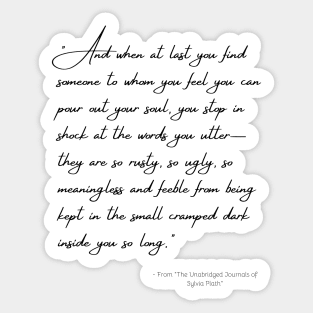 "And when at last you find
someone to whom you feel you can
pour out your soul, you stop in
shock at the words you utter—
they are so rusty, so ugly, so
meaningless and feeble from being
kept in the small cramped dark
inside you so long."
- From "The Unabridged Journals of
Sylvia Plath"